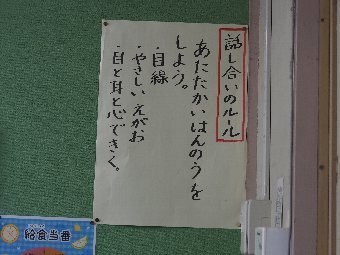 話し合いのルール
あたたかいはんのうを
しよう。
・目線
・やさしいえがお
・目と耳と心できく。
給食当番